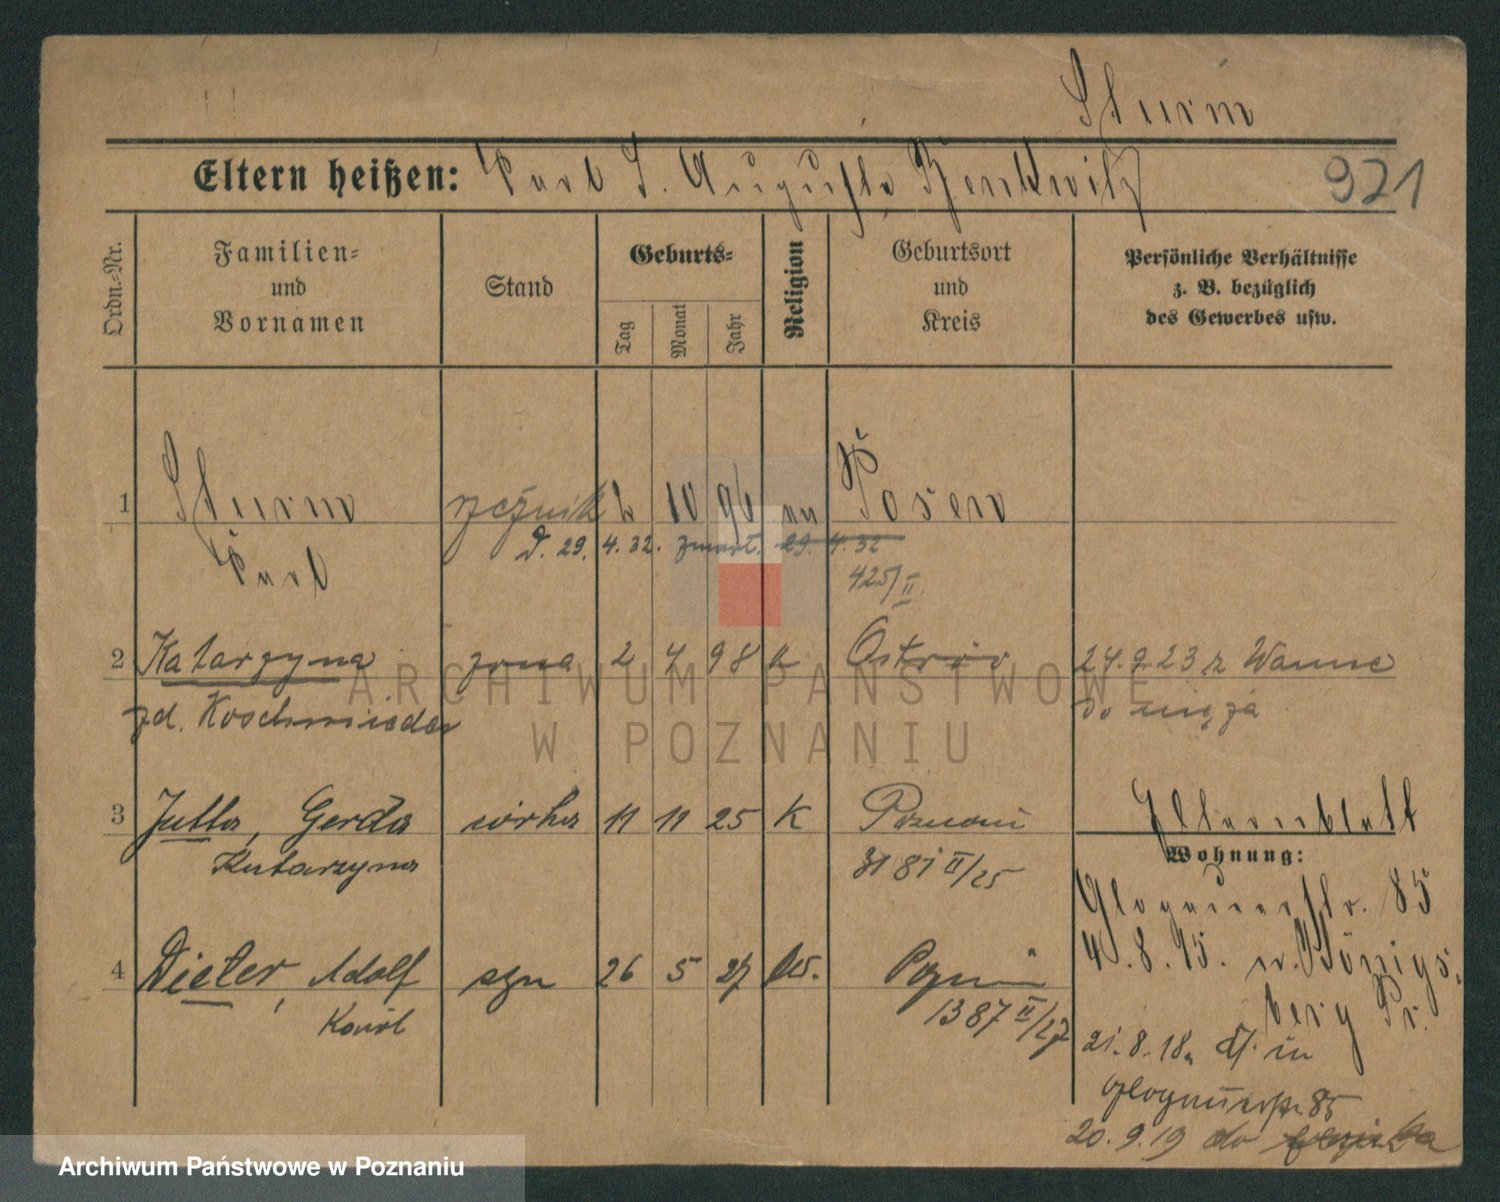 Sturm
Eltern heißen: Karl S. Auguste Renkwitz 921
Ordn.-Nr.
Familien- und Vornamen
Stand
Geburts-
Tag
Monat
Jahr
Religion
Geburtsort und Kreis
Persönliche Verhältnisse
z. B. bezüglich
des Gewerbes usw.
1 Sturm rzeźnik 2 10 96 Posen
d. 29. 4. 32. 29. 4. 32
Karl
425/II
2 Katarzyna żona 2 4 98 k Ostrów 24.9.23 z Wanne
zd. Koschmieder do męża
3 Jutta, Gerda córka 11 11 25 K Poznań Elternblatt
Katarzyna 3181 II/25
Wohnung:
Glogauerstr. 85
4 Dieter, Adolf syn 26 5 27 Poznań 4.8.15. n. Königs-
Karol 1387 II/27 berg Pr.
21.8.18. in
Glogauerstr. 85
20.9.19 do
ARCHIWUM PAŃSTWOWE
W POZNANIU
Archiwum Państwowe w Poznaniu